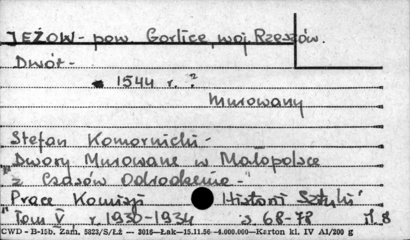 JEŻÓW - pow. Gorlice, woj. Rzeszów.
Dwór -
1544 r. ?
Murowany
Stefan Komornicki -
"Dwory Murowane w Małopolsce
z Czasów Odrodzenia - "
Prace Komisji Historii Sztuki"
"Tom V, r. 1930-1934 s. 68-78 il. 8
CWD - B-15b. Zam. 5823/S/Łż — 3016—Łak.—15.11.56 -4.000.000—Karton kl. IV A1/200 g